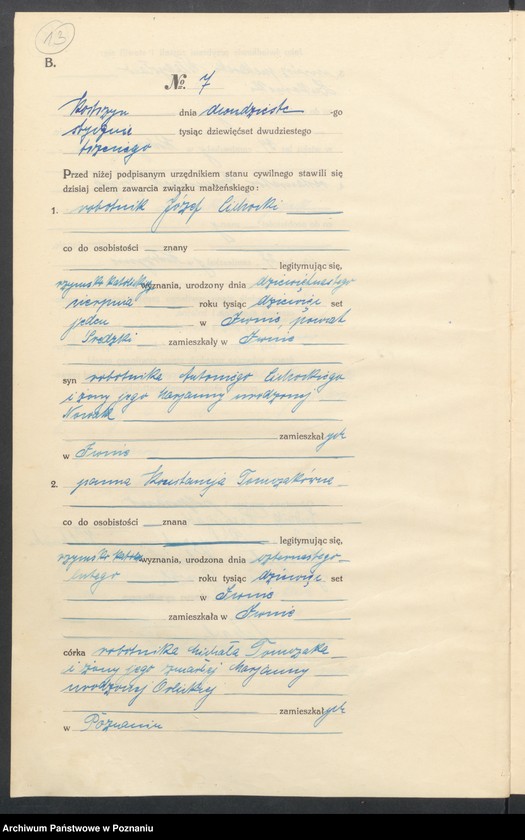 13
B.
№ 7
Kostrzyn dnia dwudziesto -go
stycznia tysiąc dziewięćset dwudziestego
trzeciego
Przed niżej podpisanym urzędnikiem stanu cywilnego stawili się
dzisiaj celem zawarcia związku małżeńskiego:
1. robotnik Józef Cichocki
co do osobistości znany
legitymując się,
rzymsko katolickiego wyznania, urodzony dnia dziewiętnastego
sierpnia roku tysiąc dziewięć set
jeden w Iwnie, powiat
Średzki zamieszkały w Iwnie
syn robotnika Antoniego Cichockiego
i żony jego Marjanny urodzonej
Nowak
zamieszkałych
w Iwnie
2. panna Konstancja Tomczakówna
co do osobistości znana
legitymując się,
rzymsko katol. wyznania, urodzona dnia czternastego
lutego roku tysiąc dziewięć set
w Iwnie
zamieszkała w Iwnie
córka robotnika Michała Tomczaka
i żony jego zmarłej Marjanny
urodzonej
zamieszkałych
w Poznaniu
Archiwum Państwowe w Poznaniu